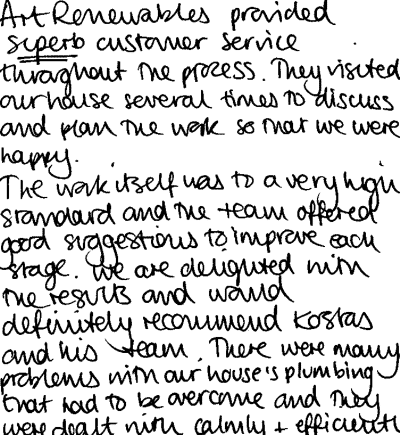 Art Renewables provided
superb customer service
throughout the process. They visited
our house several times to discuss
and plan the work so that we were
happy.
The work itself was to a very high
standard and the team offered
good suggestions to improve each
stage. We are delighted with
the results and would
definitely recommend Kostas
and his team. There were many
problems with our house's plumbing
that had to be overcome and they
were dealt with calmly + efficiently